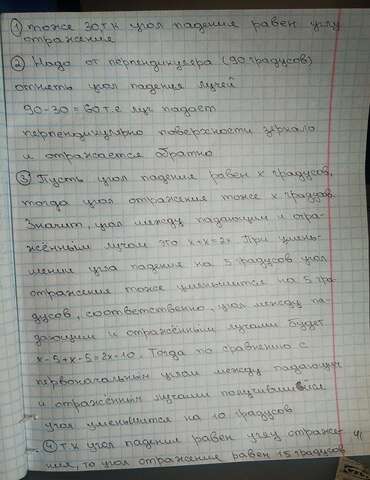 ① тоже 30, т.к угол падение равен углу
отражение
② Надо от перпендикуляра (90 градусов)
отнять угол падения лучей
90-30=60 т.е луч падает
перпендикулярно поверхности зеркало
и отражается обратно
③ Пусть угол падение равен х градусов,
тогда угол отражение тоже х градусов.
Значит, угол между падающим и отра-
жённым лучам это х+х=2х. При умень-
шении угла падение на 5 градусов угол
отражение тоже уменьшится на 5 гра-
дусов, соответственно, угол между па-
дающим и отражёнными лучами будет
х-5+х-5=2х-10. Тогда по сравнению с
первоначальным углам между падающим
и отражённых лучами получившийся
угол уменьшится на 10 градусов
④ т.к угол падение равен углу отраже-
ния, то угол отражение равен 15 градусов